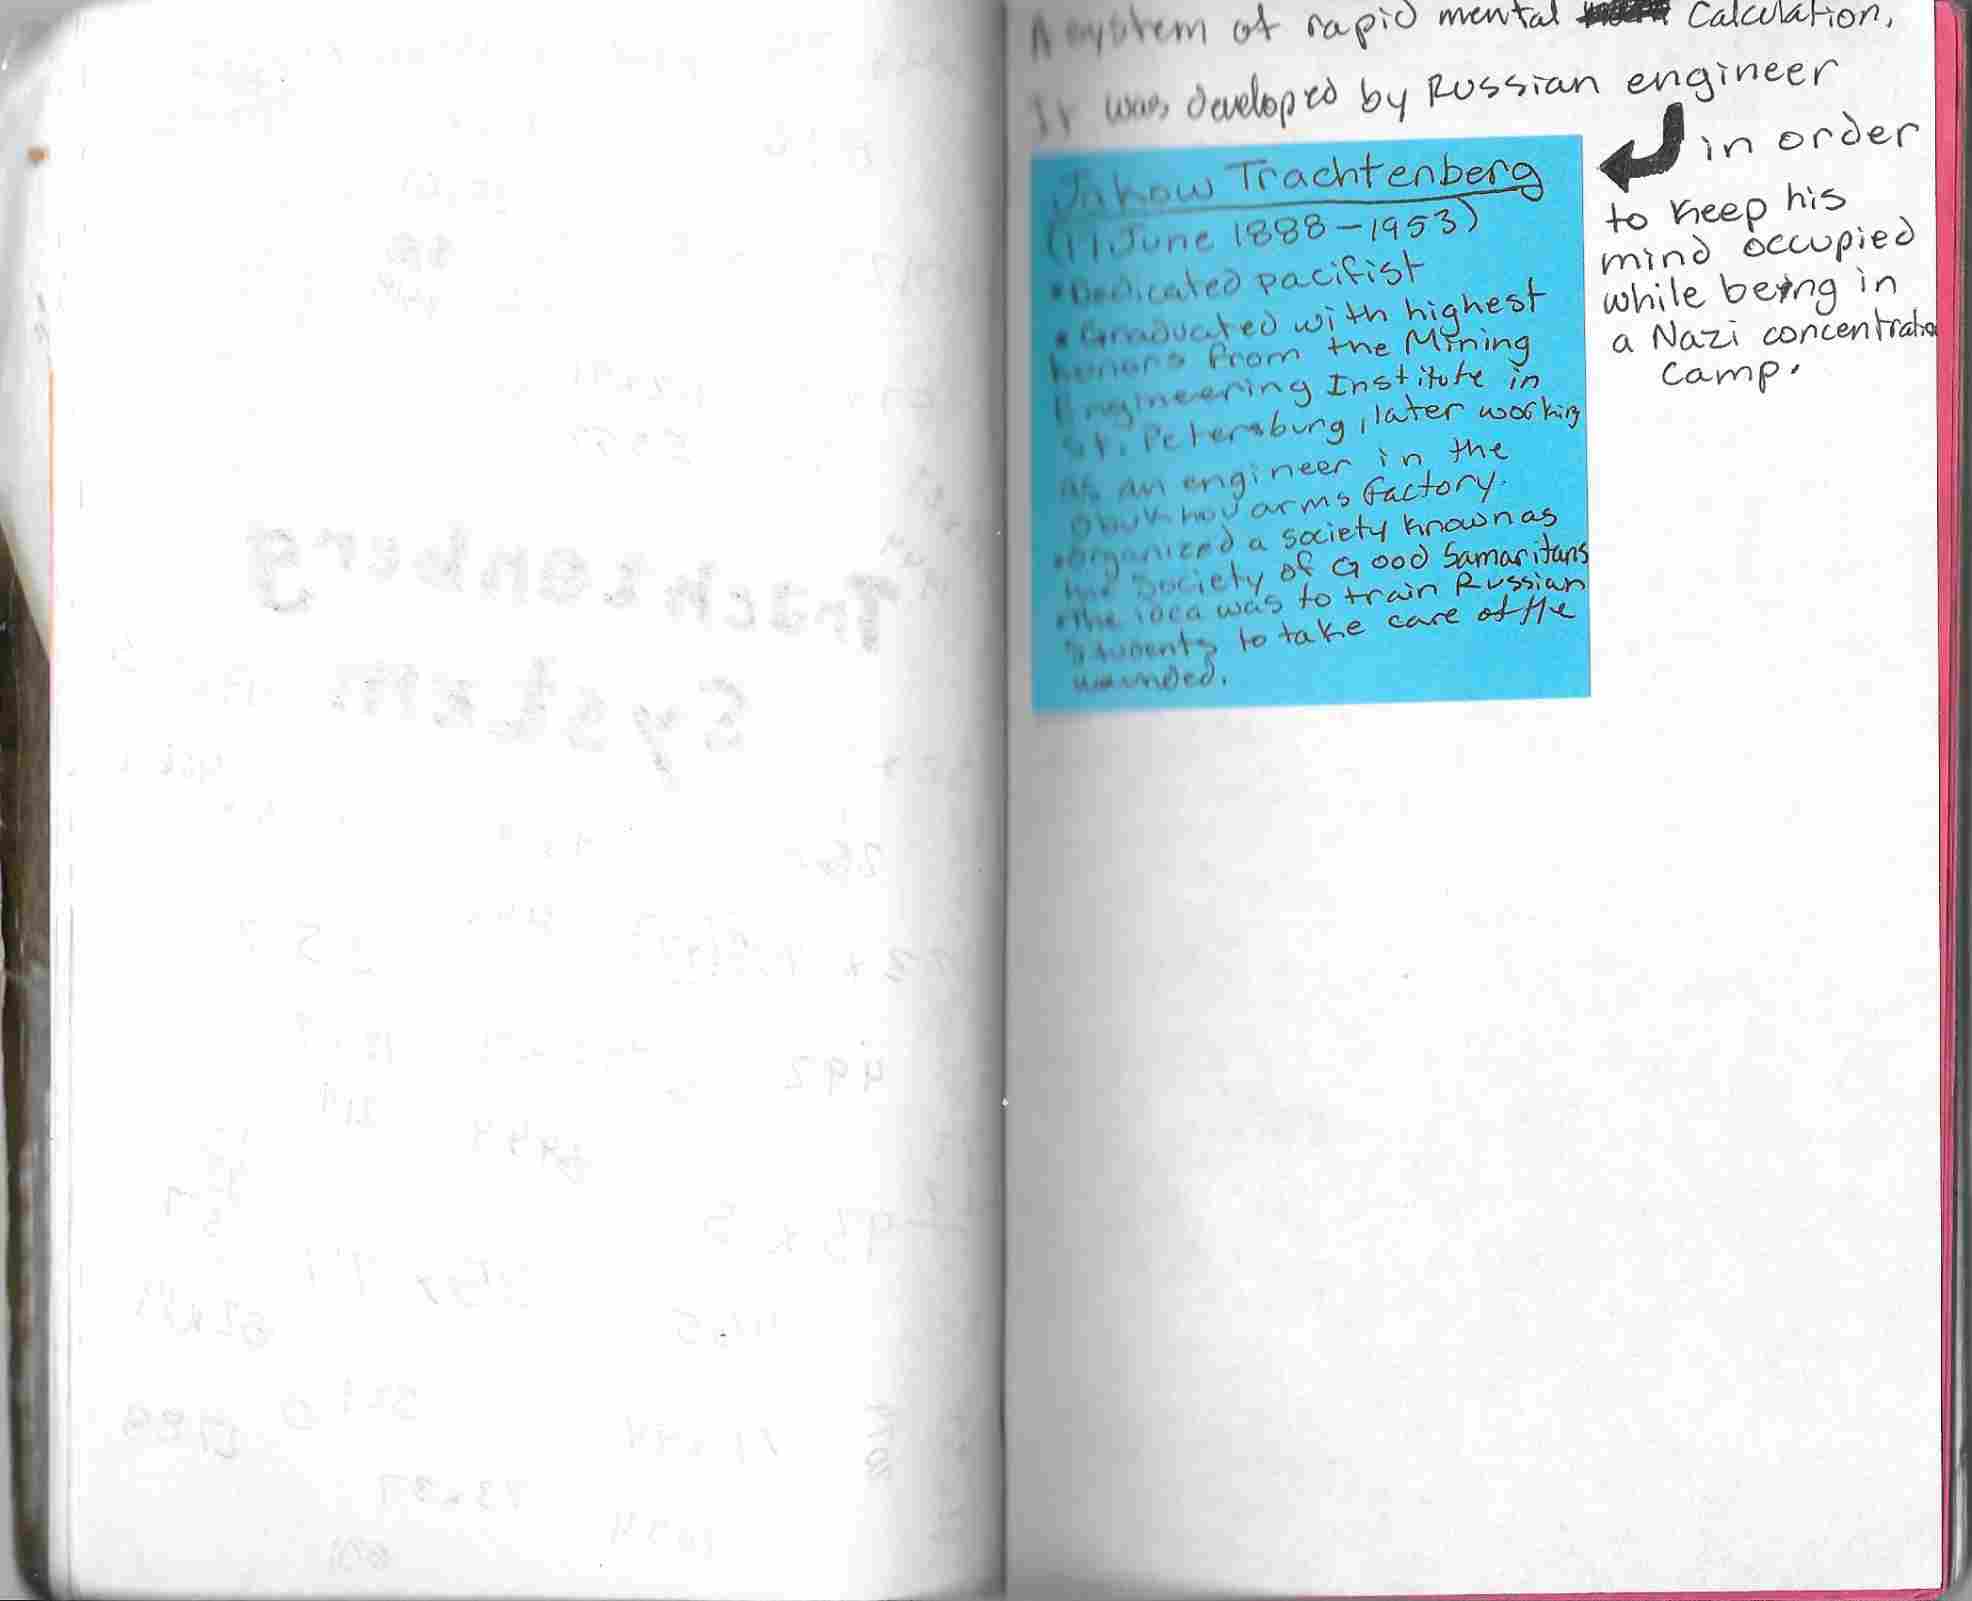 A system of rapid mental Calculation.
It was developed by Russian engineer
in order
to keep his
mind occupied
while being in
a Nazi concentration
camp.
Jakow Trachtenberg
(17 June 1888-1953)
*Dedicated pacifist
*Graduated with highest
honors from the Mining
Engineering Institute in
St. Petersburg, later working
as an engineer in the
Obukhov arms factory.
*organized a society known as
the Society of Good Samaritans
*the idea was to train Russian
students to take care of the
wounded.
Trachtenberg
System